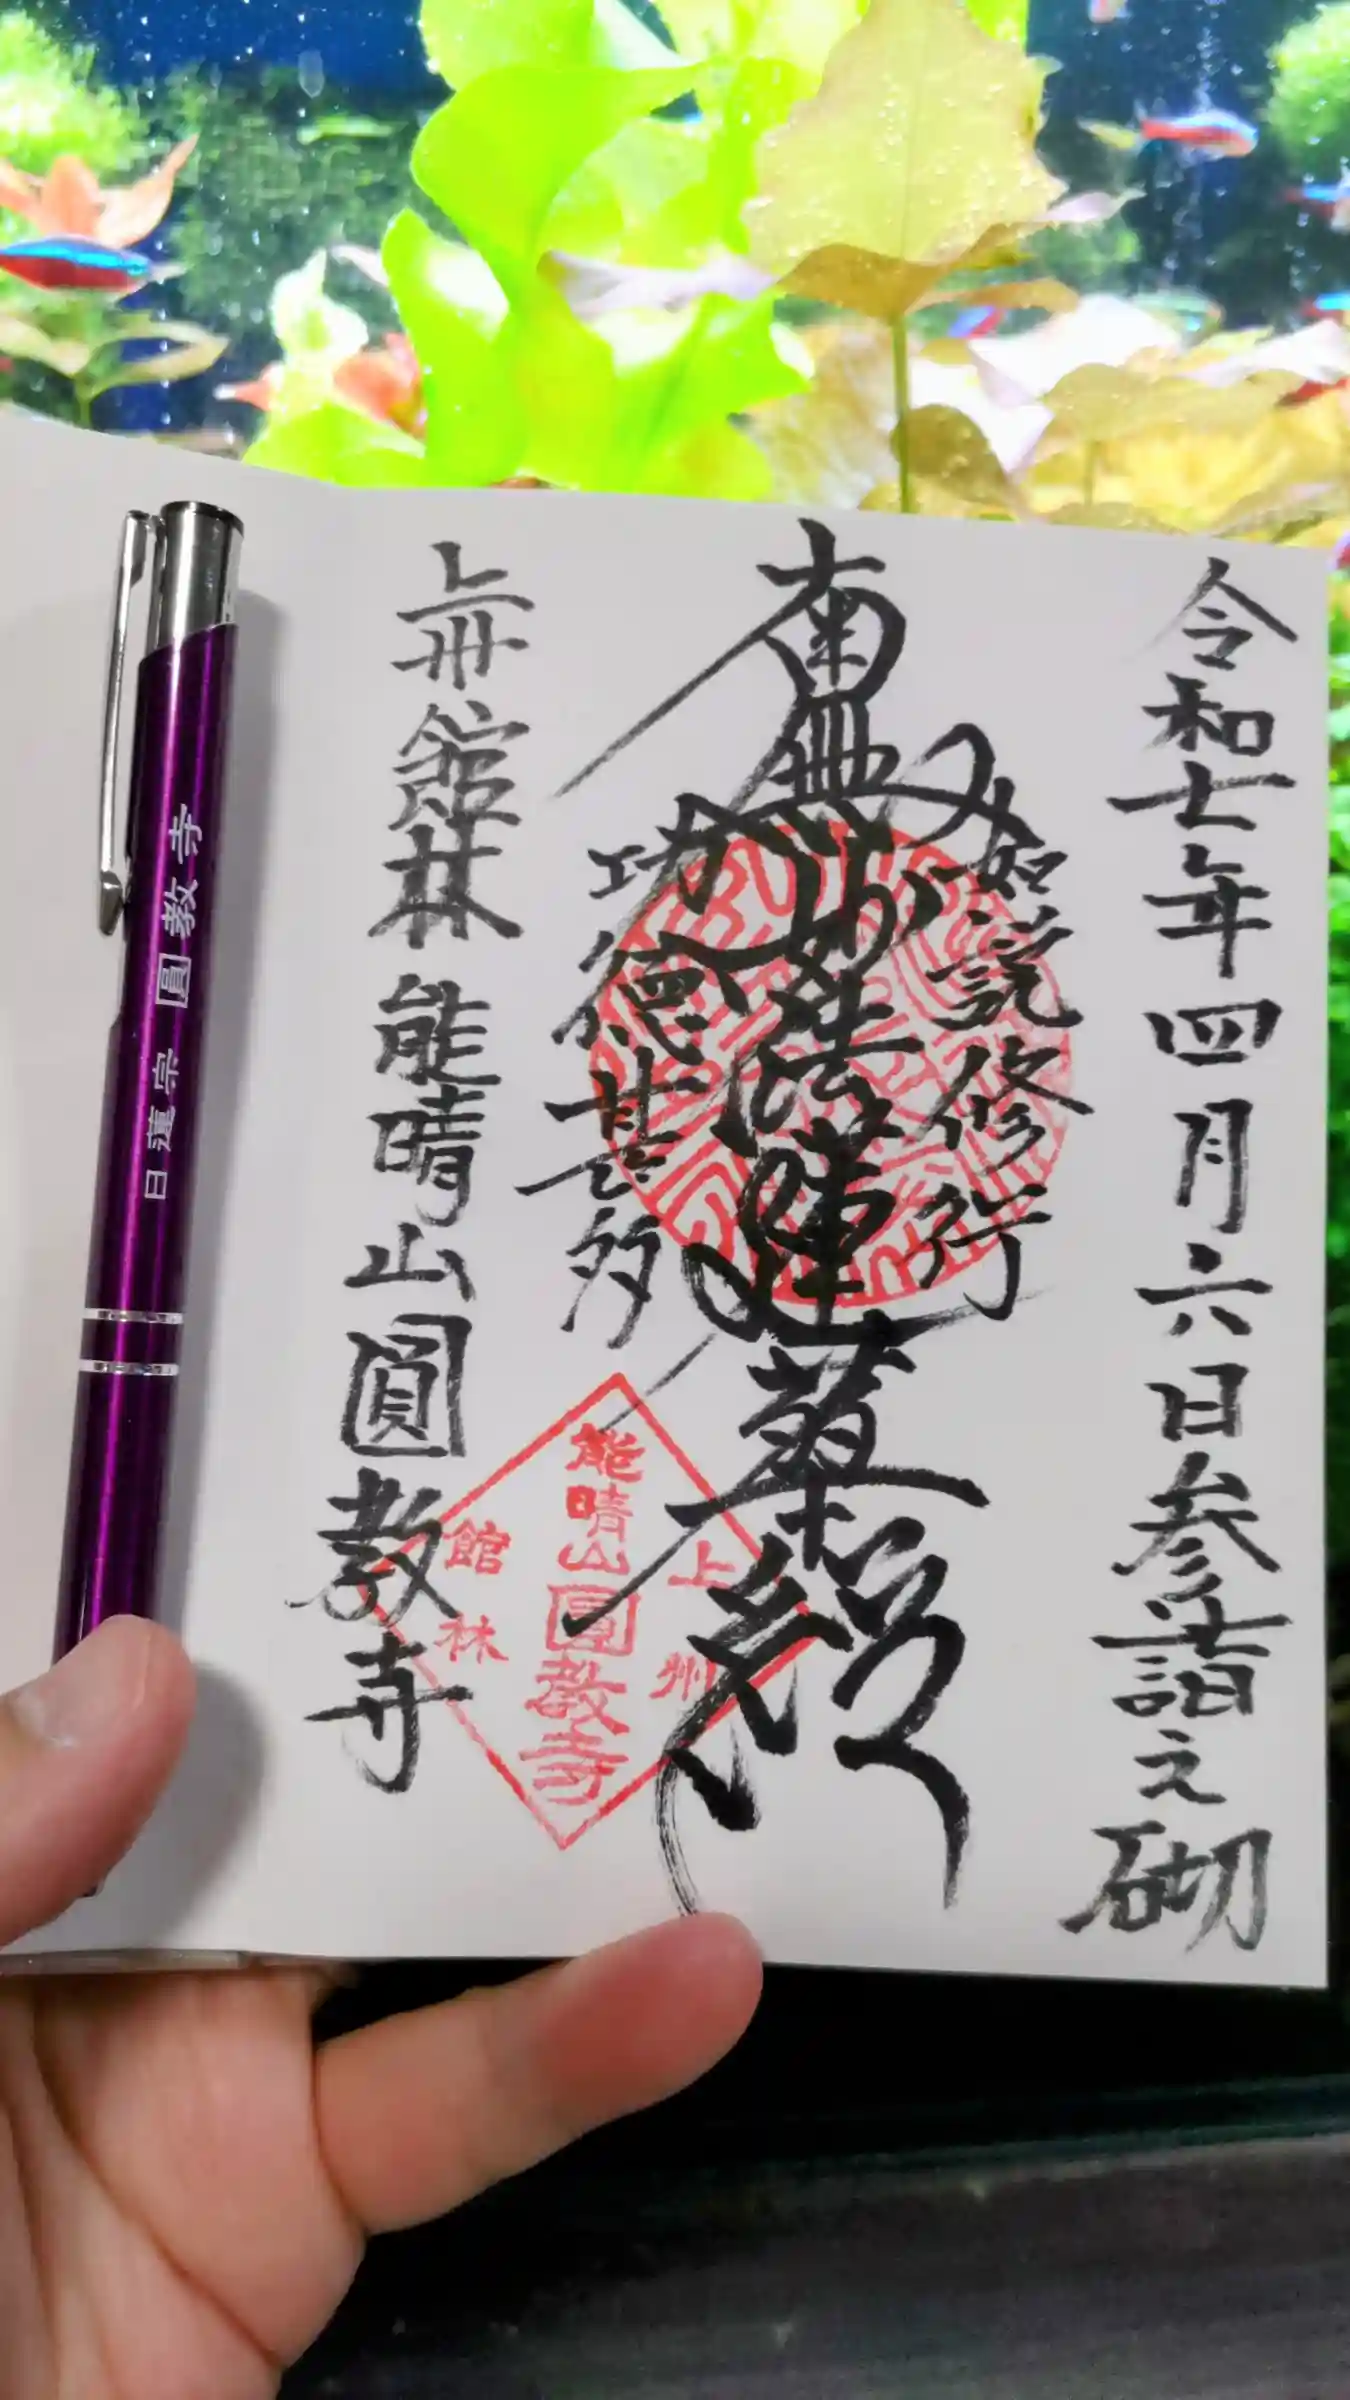 令和七年四月六日参詣之砌
如説修行
南無妙法蓮華経
功徳甚多
上州館林 能晴山圓教寺
上州
能晴山圓教寺
館林
日蓮宗 圓教寺